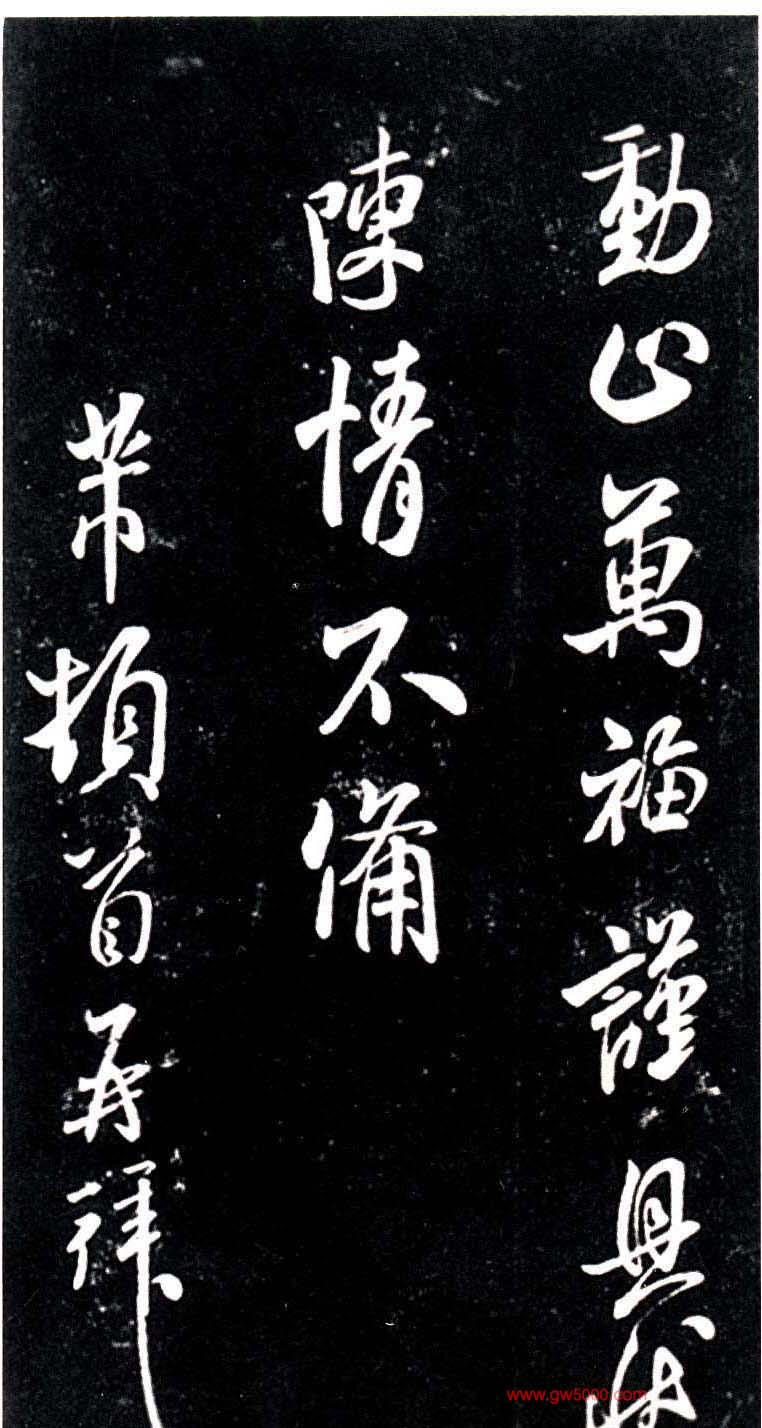 動止萬福謹具
陳情不備
芾頓首再拜
www.gw5000.com